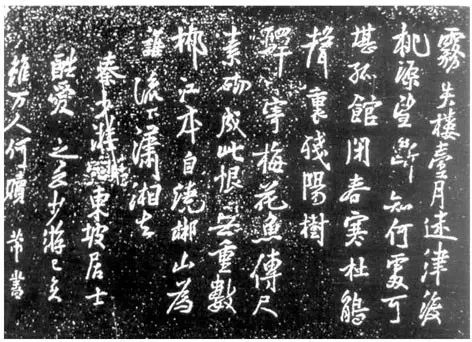 霧失樓臺月迷津渡
桃源望斷知何處可
堪孤館閉春寒杜鵑
聲裏殘陽樹
驛寄梅花魚傳尺
素砌成此恨無重數
郴江本自繞郴山為
誰流下瀟湘去
秦少游 東坡居士
酷愛之云少游已矣
雖万人何贖 芾書